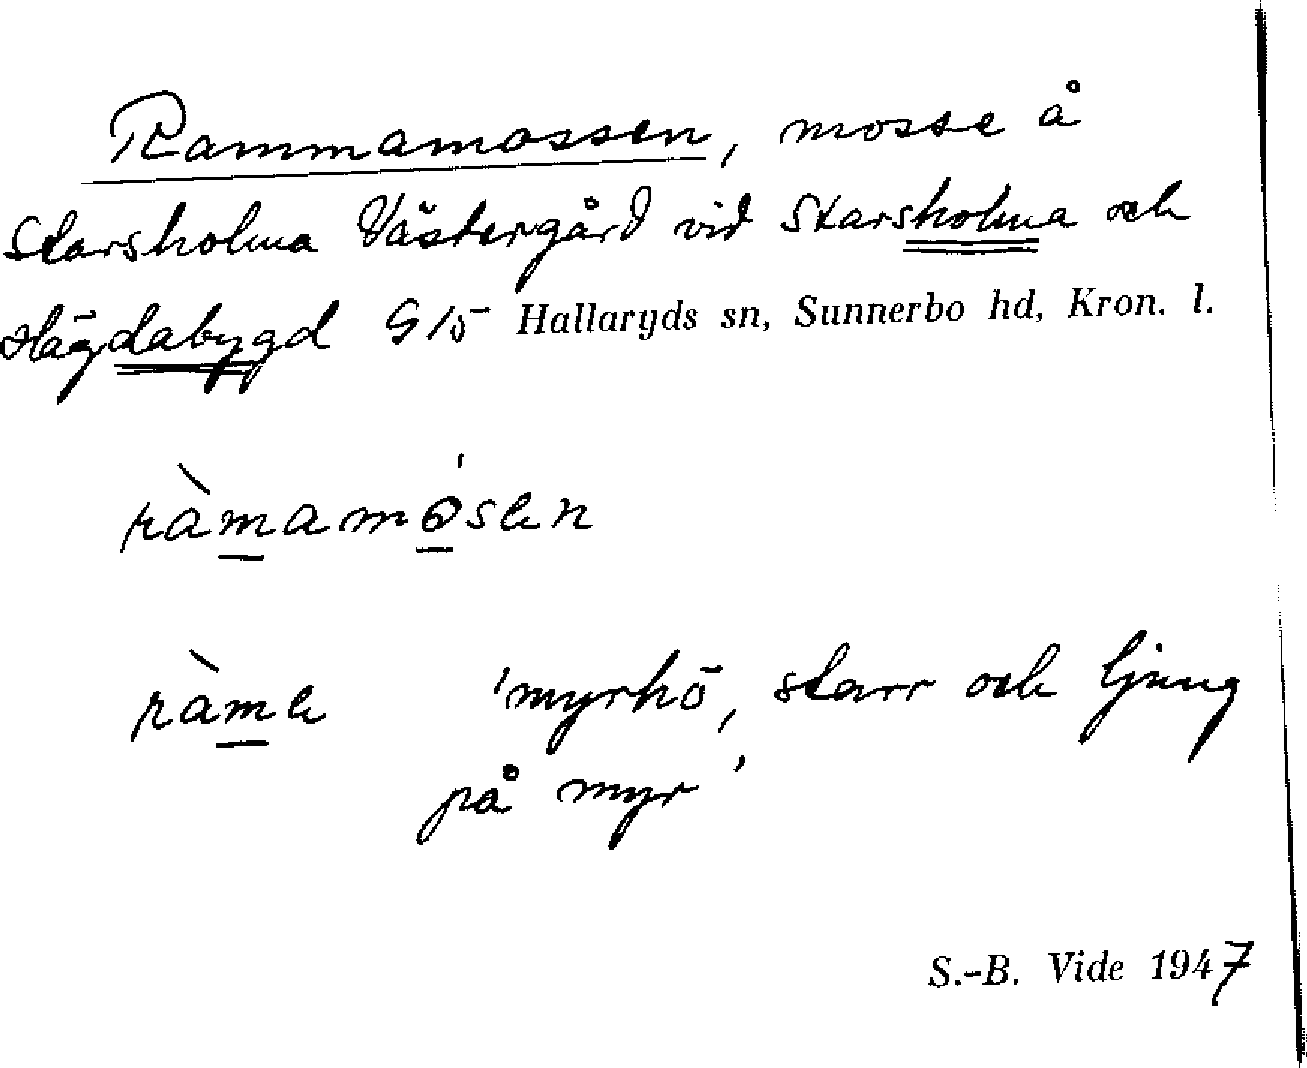 Rammamossen, mosse å
Starsholma Västergård vid Starsholma och
Hägdabygd G 10 Hallaryds sn, Sunnerbo hd, Kron. l.
ràmamósen
ràme 'myrhö, starr och ljung
på myr'
S.-B. Vide 1947